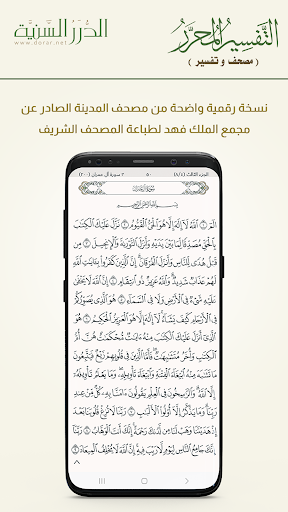 الدرر السنية
www.dorar.net
التفسير المحرر
( مصحف و تفسير )
نسخة رقمية واضحة من مصحف المدينة الصادر عن
مجمع الملك فهد لطباعة المصحف الشريف
٣ سورة آل عمران (٢٠٠) ٥٠ الجزء الثالث (٨/٤)
بِسْمِ ٱللَّهِ ٱلرَّحْمَٰنِ ٱلرَّحِيمِ
الٓمٓ ١ ٱللَّهُ لَآ إِلَٰهَ إِلَّا هُوَ ٱلْحَىُّ ٱلْقَيُّومُ ٢ نَزَّلَ عَلَيْكَ ٱلْكِتَٰبَ
بِٱلْحَقِّ مُصَدِّقًا لِّمَا بَيْنَ يَدَيْهِ وَأَنزَلَ ٱلتَّوْرَىٰةَ وَٱلْإِنجِيلَ ٣
مِن قَبْلُ هُدًى لِّلنَّاسِ وَأَنزَلَ ٱلْفُرْقَانَ إِنَّ ٱلَّذِينَ كَفَرُوا۟ بِـَٔايَٰتِ ٱللَّهِ
لَهُمْ عَذَابٌ شَدِيدٌ وَٱللَّهُ عَزِيزٌ ذُو ٱنتِقَامٍ ٤ إِنَّ ٱللَّهَ لَا يَخْفَىٰ عَلَيْهِ
شَىْءٌ فِى ٱلْأَرْضِ وَلَا فِى ٱلسَّمَآءِ ٥ هُوَ ٱلَّذِى يُصَوِّرُكُمْ
فِى ٱلْأَرْحَامِ كَيْفَ يَشَآءُ لَآ إِلَٰهَ إِلَّا هُوَ ٱلْعَزِيزُ ٱلْحَكِيمُ ٦
هُوَ ٱلَّذِىٓ أَنزَلَ عَلَيْكَ ٱلْكِتَٰبَ مِنْهُ ءَايَٰتٌ مُّحْكَمَٰتٌ هُنَّ أُمُّ
ٱلْكِتَٰبِ وَأُخَرُ مُتَشَٰبِهَٰتٌ فَأَمَّا ٱلَّذِينَ فِى قُلُوبِهِمْ زَيْغٌ فَيَتَّبِعُونَ
مَا تَشَٰبَهَ مِنْهُ ٱبْتِغَآءَ ٱلْفِتْنَةِ وَٱبْتِغَآءَ تَأْوِيلِهِۦ وَمَا يَعْلَمُ تَأْوِيلَهُۥٓ
إِلَّا ٱللَّهُ وَٱلرَّٰسِخُونَ فِى ٱلْعِلْمِ يَقُولُونَ ءَامَنَّا بِهِۦ كُلٌّ مِّنْ عِندِ
رَبِّنَا وَمَا يَذَّكَّرُ إِلَّآ أُو۟لُوا۟ ٱلْأَلْبَٰبِ ٧ رَبَّنَا لَا تُزِغْ قُلُوبَنَا بَعْدَ
إِذْ هَدَيْتَنَا وَهَبْ لَنَا مِن لَّدُنكَ رَحْمَةً إِنَّكَ أَنتَ ٱلْوَهَّابُ ٨
رَبَّنَآ إِنَّكَ جَامِعُ ٱلنَّاسِ لِيَوْمٍ لَّا رَيْبَ فِيهِ إِنَّ ٱللَّهَ لَا يُخْلِفُ ٱلْمِيعَادَ ٩